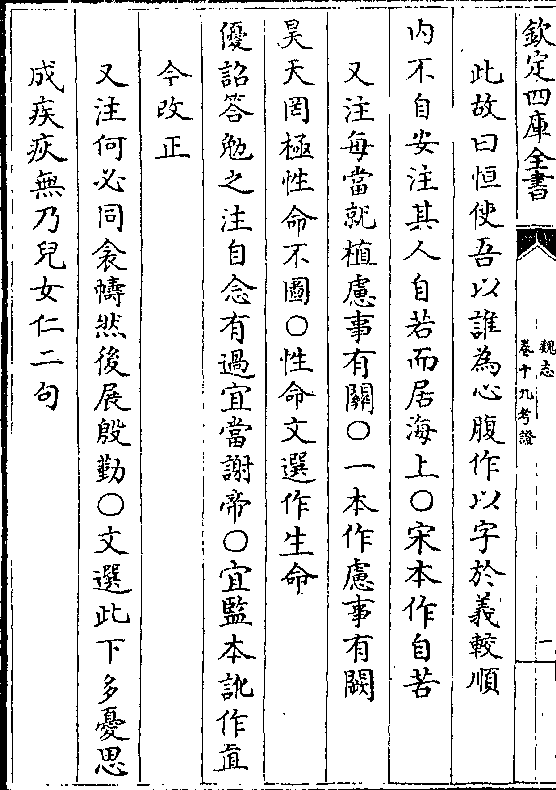 欽定四庫全書
魏志
卷十九考證
一
此故曰恒使吾以誰為心腹作以字於義較順
内不自安注其人自若而居海上○宋本作自苦
又注每當就植慮事有關○一本作慮事有闕
昊天罔極性命不圖○性命文選作生命
優詔答勉之注自念有過宜當謝帝○宜監本訛作直
今改正
又注何必同衾幬然後展殷勤○文選此下多憂思
成疾疢無乃兒女仁二句